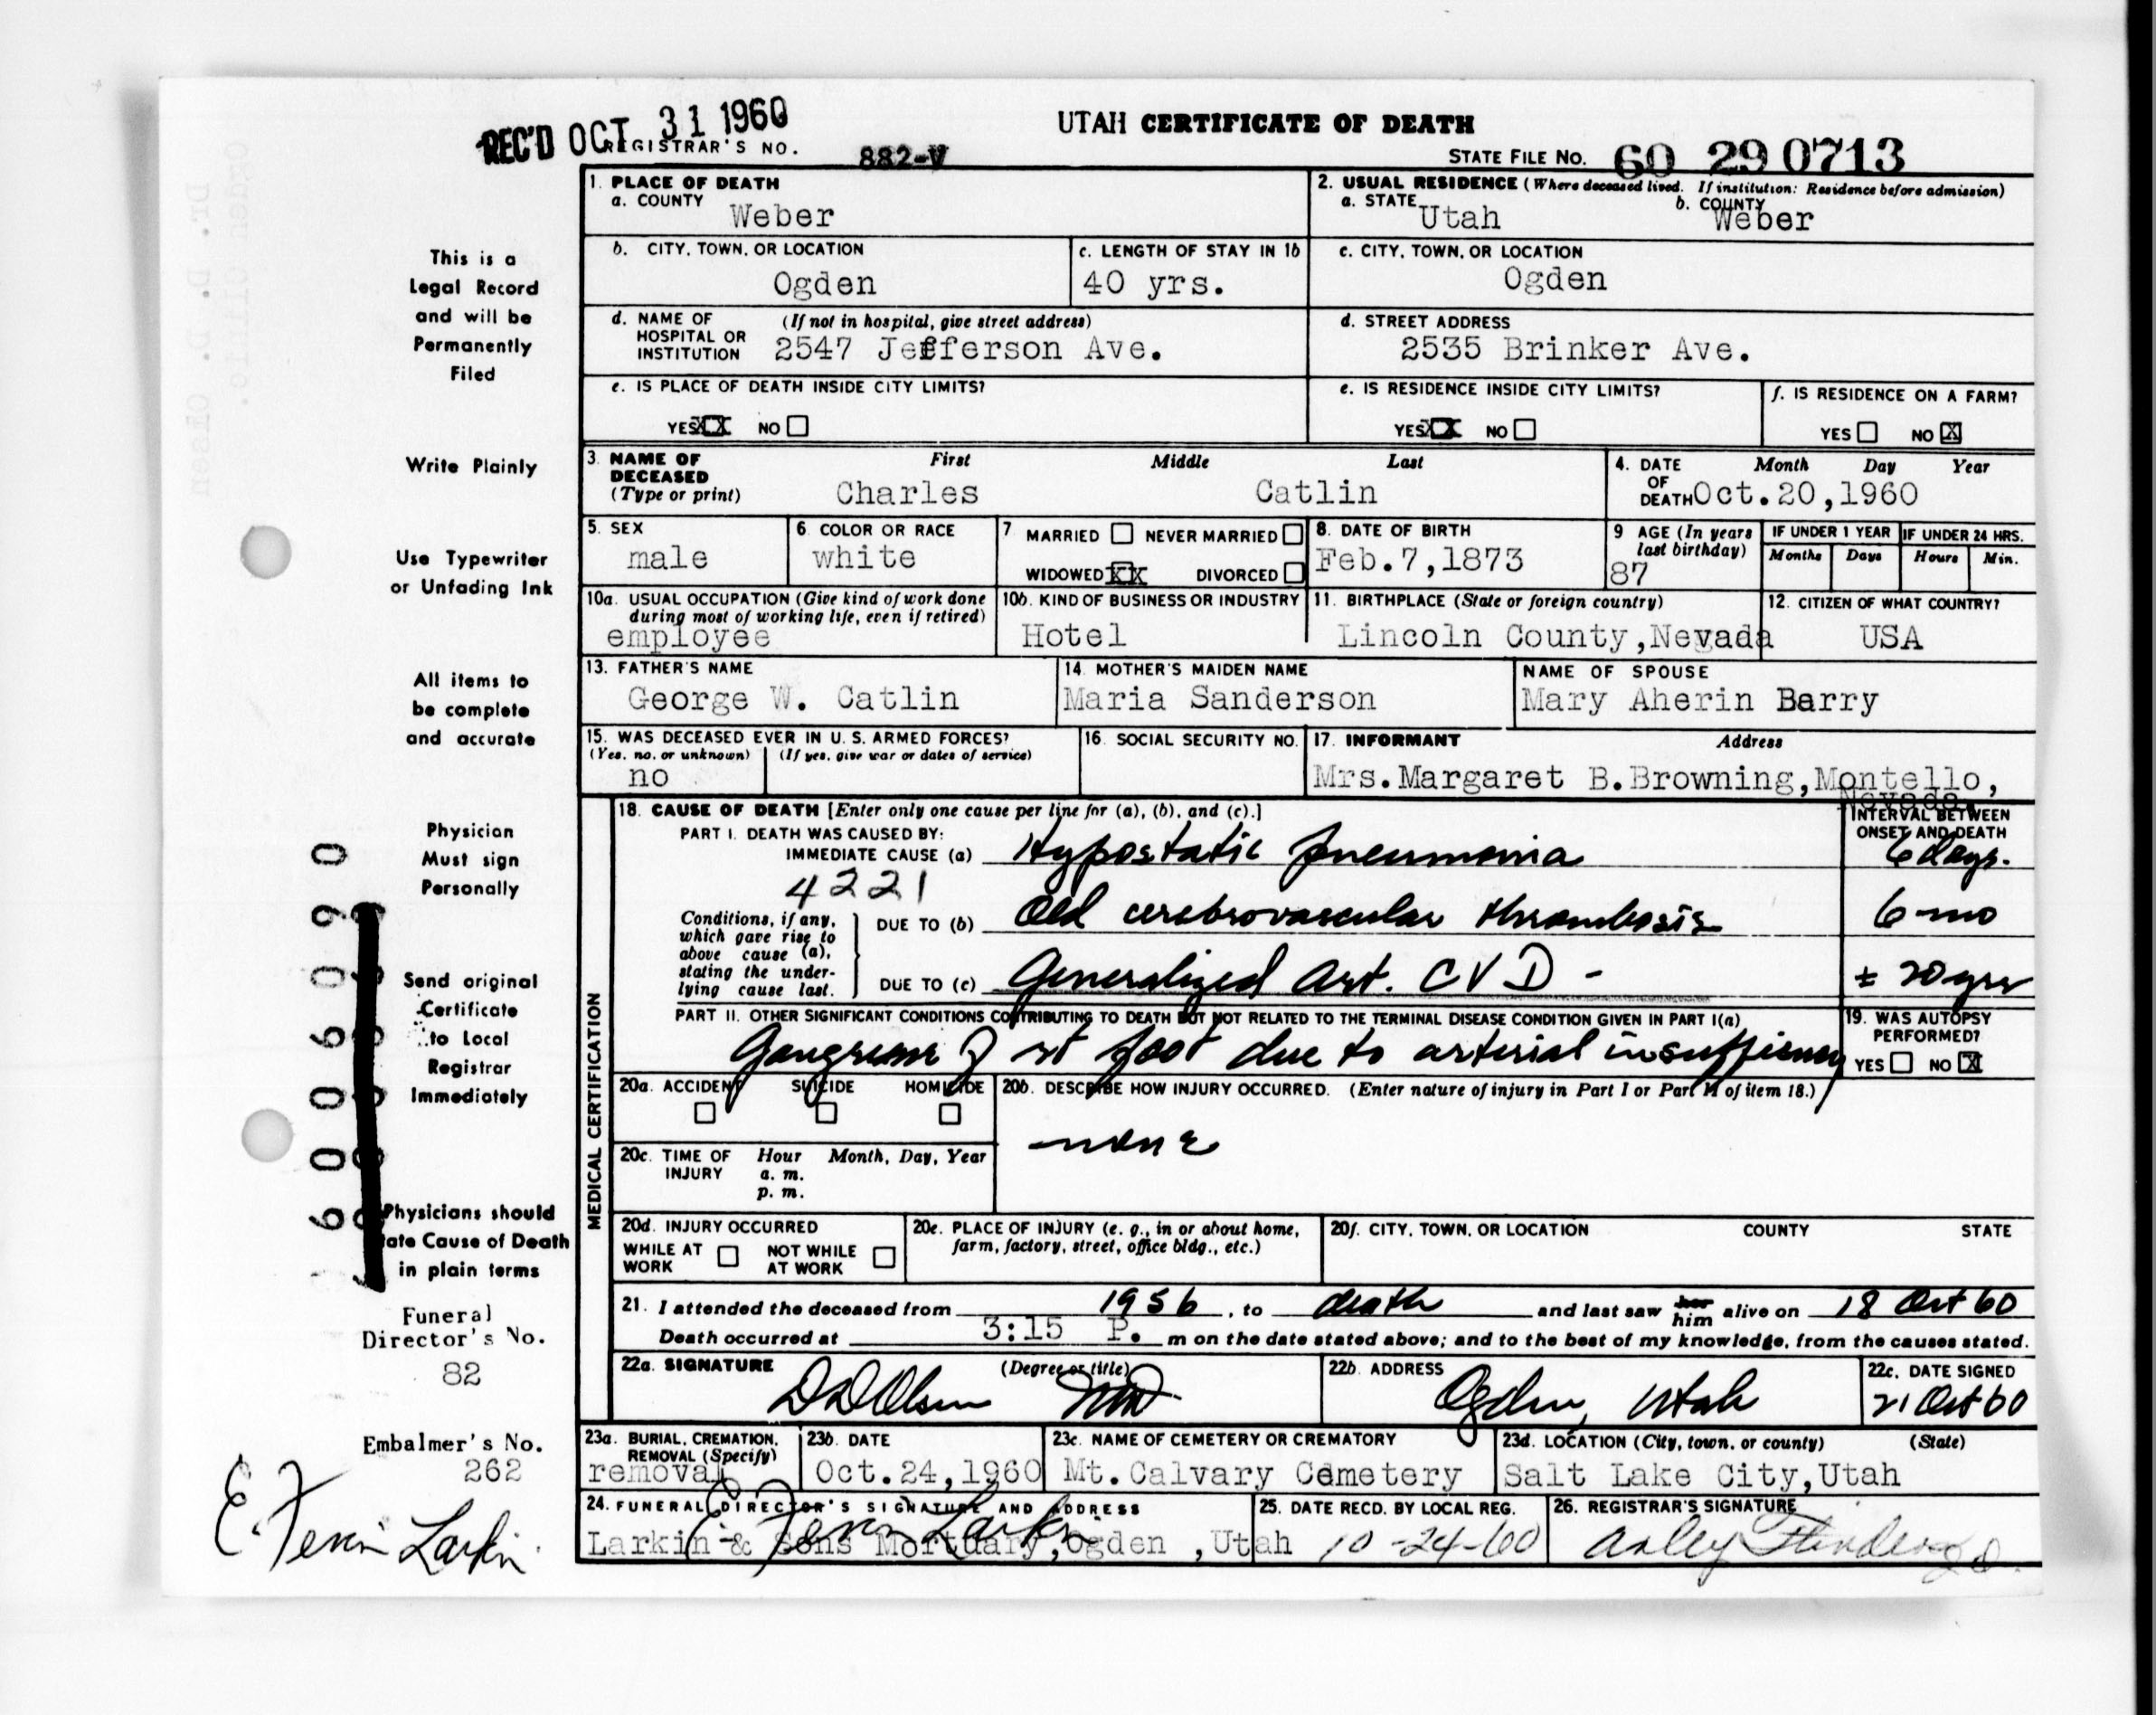 REC'D OCT 31 1960
UTAH CERTIFICATE OF DEATH
REGISTRAR'S NO. 882-V
STATE FILE NO. 60 29 0713
1. PLACE OF DEATH
a. COUNTY
Weber
2. USUAL RESIDENCE (Where deceased lived. If institution: Residence before admission)
a. STATE Utah
b. COUNTY Weber
b. CITY, TOWN, OR LOCATION
Ogden
c. LENGTH OF STAY IN 1b
40 yrs.
c. CITY, TOWN, OR LOCATION
Ogden
d. NAME OF HOSPITAL OR INSTITUTION
(If not in hospital, give street address)
2547 Jefferson Ave.
d. STREET ADDRESS
2535 Brinker Ave.
e. IS PLACE OF DEATH INSIDE CITY LIMITS?
YES XX NO
e. IS RESIDENCE INSIDE CITY LIMITS?
YES XX NO
f. IS RESIDENCE ON A FARM?
YES NO X
3. NAME OF DECEASED
(Type or print)
First Middle Last
Charles Catlin
4. DATE OF DEATH
Month Day Year
Oct.20,1960
5. SEX
male
6. COLOR OR RACE
white
7 MARRIED NEVER MARRIED
WIDOWED XX DIVORCED
8. DATE OF BIRTH
Feb.7,1873
9 AGE (In years last birthday)
87
IF UNDER 1 YEAR
Months Days
IF UNDER 24 HRS.
Hours Min.
10a. USUAL OCCUPATION (Give kind of work done during most of working life, even if retired)
employee
10b. KIND OF BUSINESS OR INDUSTRY
Hotel
11. BIRTHPLACE (State or foreign country)
Lincoln County,Nevada
12. CITIZEN OF WHAT COUNTRY?
USA
13. FATHER'S NAME
George W. Catlin
14. MOTHER'S MAIDEN NAME
Maria Sanderson
NAME OF SPOUSE
Mary Aherin Barry
15. WAS DECEASED EVER IN U. S. ARMED FORCES?
(Yes, no, or unknown) (If yes, give war or dates of service)
no
16. SOCIAL SECURITY NO.
17. INFORMANT Address
Mrs.Margaret B.Browning,Montello,
Nevada.
MEDICAL CERTIFICATION
18. CAUSE OF DEATH [Enter only one cause per line for (a), (b), and (c).]
INTERVAL BETWEEN ONSET AND DEATH
PART I. DEATH WAS CAUSED BY:
IMMEDIATE CAUSE (a) Hypostatic pneumonia 6 days.
4221
Conditions, if any, which gave rise to above cause (a), stating the underlying cause last.
DUE TO (b) Old cerebrovascular thrombosis 6 mo
DUE TO (c) Generalized Art. CVD - ± 20 yrs
PART II. OTHER SIGNIFICANT CONDITIONS CONTRIBUTING TO DEATH BUT NOT RELATED TO THE TERMINAL DISEASE CONDITION GIVEN IN PART I(a)
Gangrene of rt foot due to arterial insufficiency
19. WAS AUTOPSY PERFORMED?
YES NO X
20a. ACCIDENT SUICIDE HOMICIDE
20b. DESCRIBE HOW INJURY OCCURRED. (Enter nature of injury in Part I or Part II of item 18.)
none
20c. TIME OF INJURY
Hour Month, Day, Year
a. m.
p. m.
20d. INJURY OCCURRED
WHILE AT WORK NOT WHILE AT WORK
20e. PLACE OF INJURY (e. g., in or about home, farm, factory, street, office bldg., etc.)
20f. CITY, TOWN, OR LOCATION COUNTY STATE
21. I attended the deceased from 1956, to death and last saw her him alive on 18 Oct 60
Death occurred at 3:15 P. m on the date stated above; and to the best of my knowledge, from the causes stated.
22a. SIGNATURE (Degree or title)
DD Olsen MD
22b. ADDRESS
Ogden, Utah
22c. DATE SIGNED
21 Oct 60
23a. BURIAL, CREMATION, REMOVAL (Specify)
removal
23b. DATE
Oct.24,1960
23c. NAME OF CEMETERY OR CREMATORY
Mt.Calvary Cemetery
23d. LOCATION (City, town, or county) (State)
Salt Lake City,Utah
24. FUNERAL DIRECTOR'S SIGNATURE AND ADDRESS
E. Ferrin Larkin
Larkin & Sons Mortuary,Ogden ,Utah
25. DATE RECD. BY LOCAL REG.
10-24-60
26. REGISTRAR'S SIGNATURE
This is a
Legal Record
and will be
Permanently
Filed
Write Plainly
Use Typewriter
or Unfading Ink
All items to
be complete
and accurate
Physician
Must sign
Personally
Send original
Certificate
to Local
Registrar
Immediately
Physicians should
ate Cause of Death
in plain terms
Funeral
Director's No.
82
Embalmer's No.
262
E. Ferrin Larkin
Dr. D. D. Olsen
Ogden Clinic.